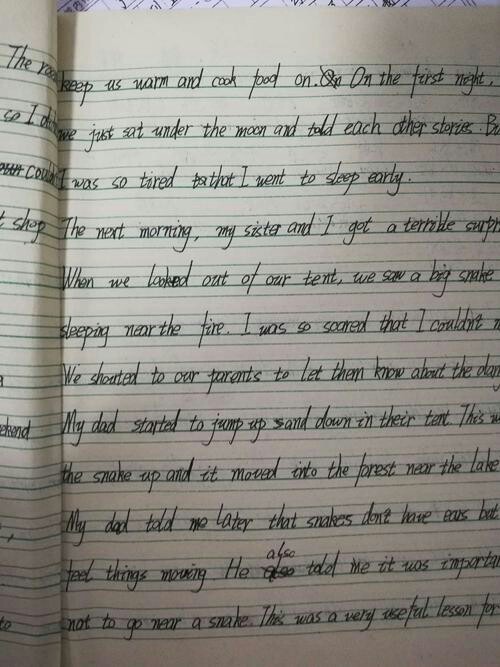 The
so I
couldn
t shop
eekend
to
keep us warm and cook food on. On the first night,
we just sat under the moon and told each other stories. Bu
I was so tired that I went to sleep early.
The next morning, my sister and I got a terrible surpri
When we looked out of our tent, we saw a big snake
sleeping near the fire. I was so scared that I couldn't m
We shouted to our parents to let them know about the dan
My dad started to jump up and down in their tent. This w
the snake up and it moved into the forest near the lake
My dad told me later that snakes don't have ears but
feel things moving. He also told me it was importa
not to go near a snake. This was a very useful lesson for